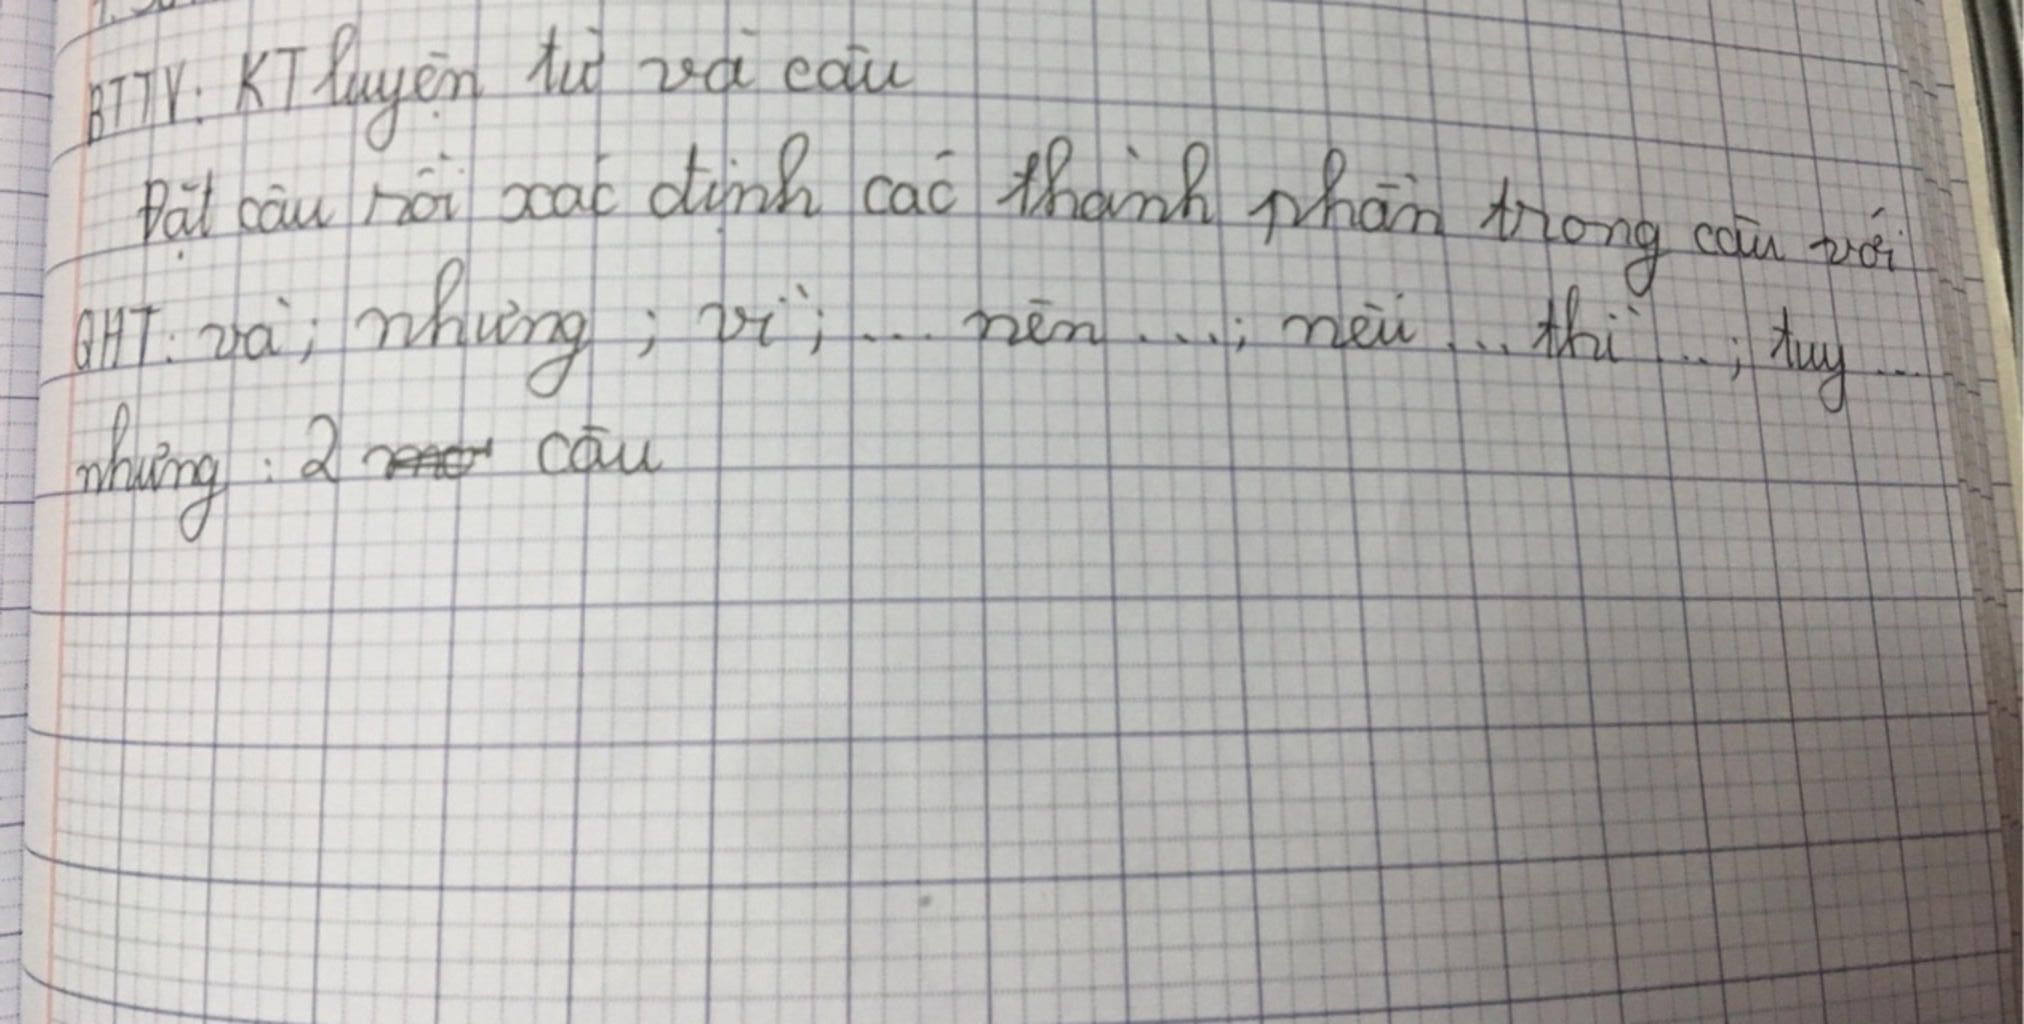 BTTV: KT luyện từ và câu
Đặt câu rồi xác định các thành phần trong câu với
QHT: và; nhưng; vì; ... nên ...; nếu ... thì ...; tuy ...
nhưng: 2 câu